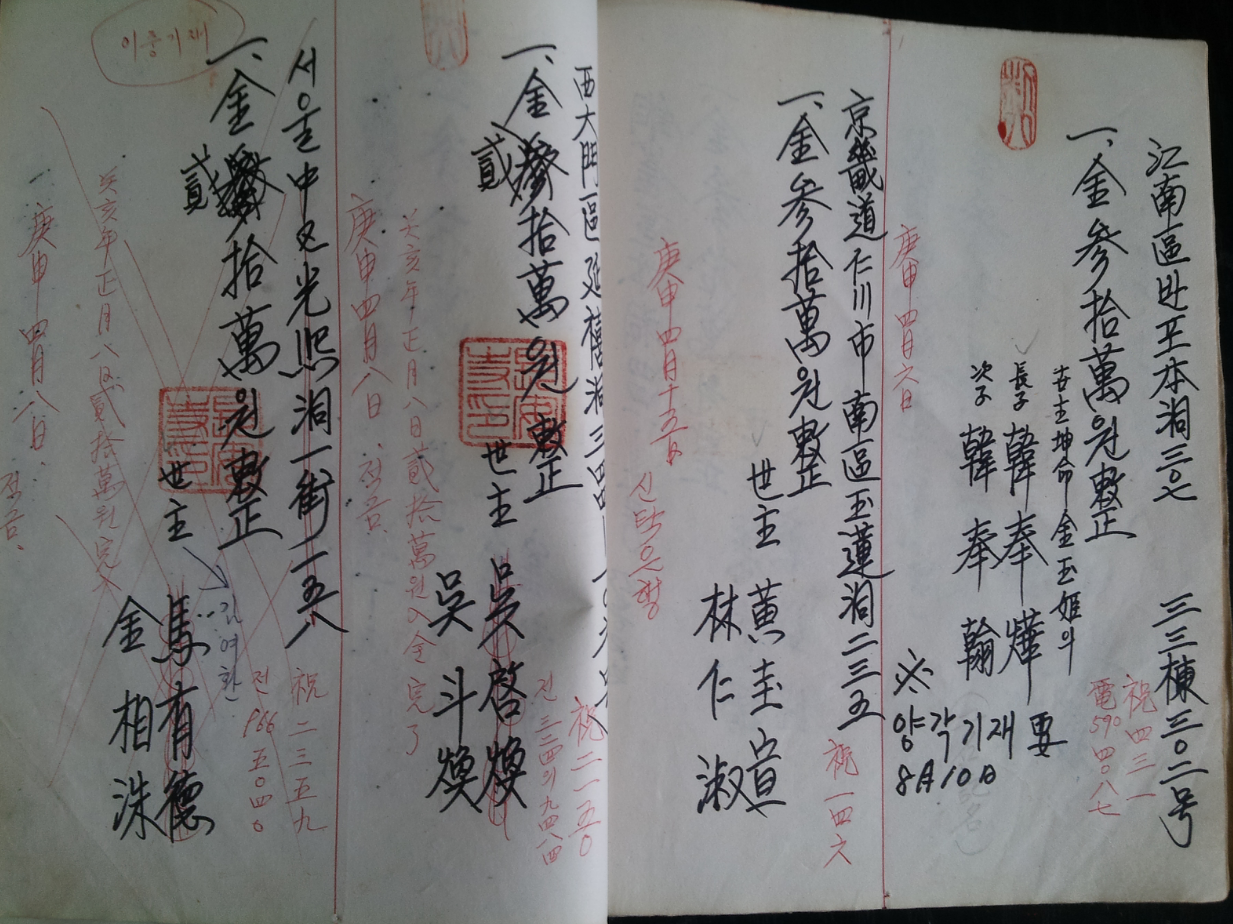 江南區 반포本洞 三o七 三三棟 三o二号
一、金 參拾萬원整正
世主 坤命 金玉姬의
長子 韓奉燁
次子 韓奉翰
祝 四三一
電 590 四o八七
※ 양각기재 要
8月10日
庚申 四月 六日
京畿道 仁川市 南區 玉蓮洞 二三五
一、金 參拾萬원整正
世主
林仁淑
祝 一四六
庚申 四月 十五日
신탁은행
西大門區 延禧洞 三四
一、金 拾萬원整正
貳
世主 吳啓煥
吳斗煥
祝 二一五o
전 三三四의 九四八四
癸亥年 正月 八日 貳拾萬원 入金 完了
庚申 四月 八日 전음
이중기재
서울 中区 光熙洞 一街 一五八
一、金 拾萬원整正
貳
世主 馬有德
金相洙
祝 二三五九
전 966 五o四o
癸亥年 正月 八日 貳拾萬원 完
一、庚申 四月 八日
전음